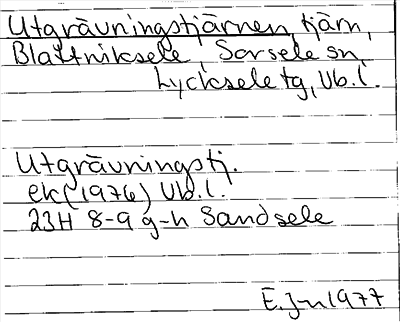 Utgrävningstjärnen, tjärn,
Blattniksele, Sorsele sn,
Lycksele tg, Vb.l.
Utgrävningstj.
ek(1976) Vb.l.
23H 8-9 g-h Sandsele
E.J-n 1977